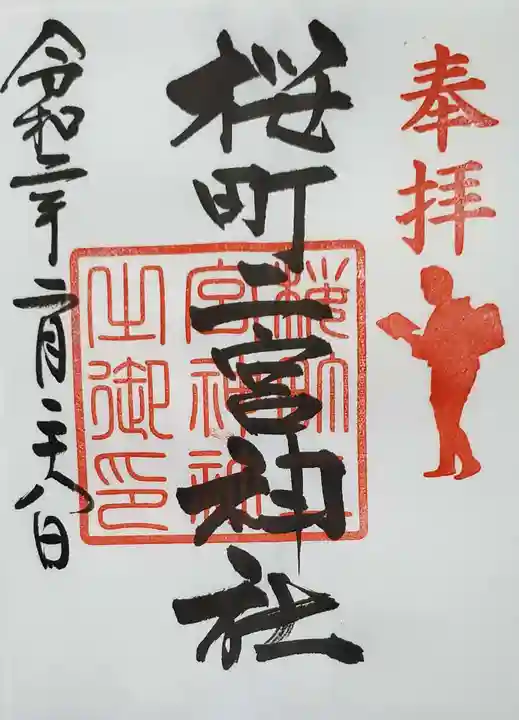 奉拝
桜町二宮神社
桜町二宮神社之御印
令和二年二月二十八日